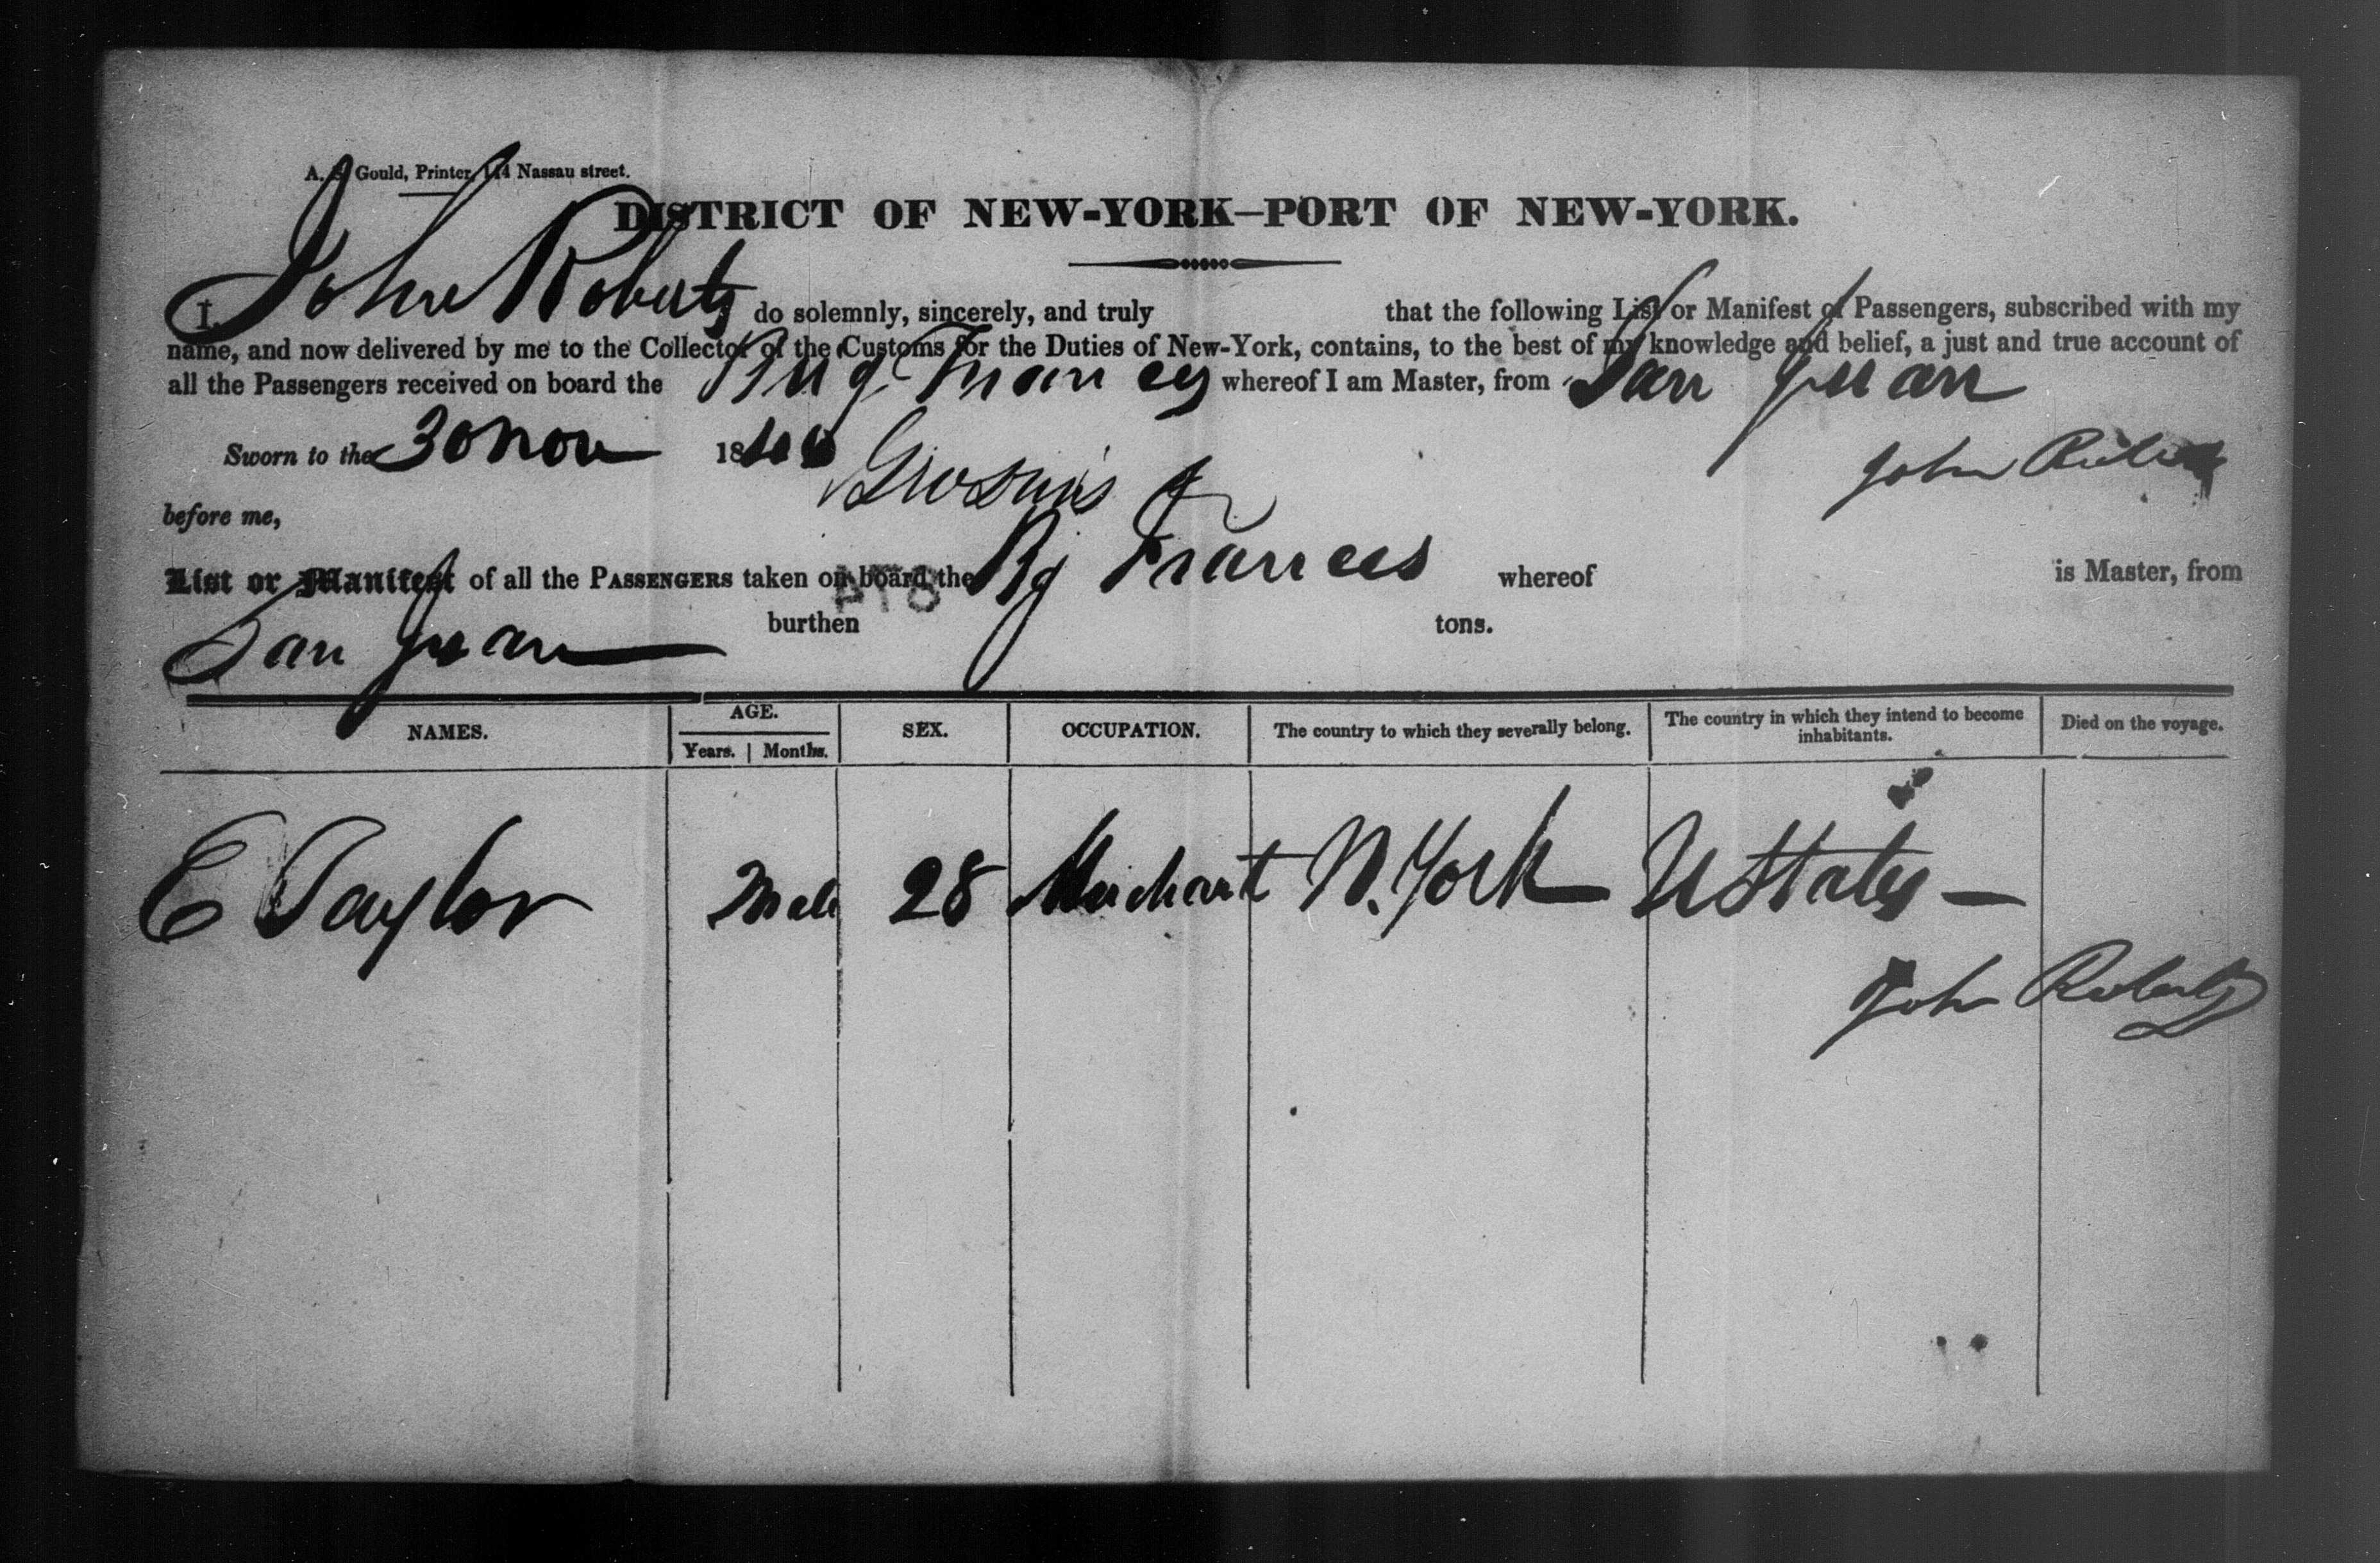 A. S. Gould, Printer, 144 Nassau street.
DISTRICT OF NEW-YORK—PORT OF NEW-YORK.
I, John Roberts do solemnly, sincerely, and truly that the following List or Manifest of Passengers, subscribed with my
name, and now delivered by me to the Collector of the Customs for the Duties of New-York, contains, to the best of my knowledge and belief, a just and true account of
all the Passengers received on board the Brig Frances whereof I am Master, from San Juan
Sworn to the 30 Nov 18
John Roberts
before me,
List or Manifest of all the PASSENGERS taken on board the Bg Frances whereof is Master, from
San Juan burthen tons.
NAMES. AGE. Years. Months. SEX. OCCUPATION. The country to which they severally belong. The country in which they intend to become inhabitants. Died on the voyage.
E Taylor Male 28 Merchant N. York U States —
John Roberts